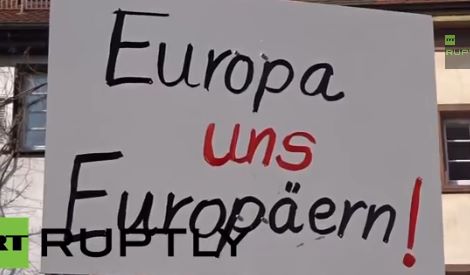 RT
RUPTLY
Europa
uns
Europäern!
RT RUPTLY